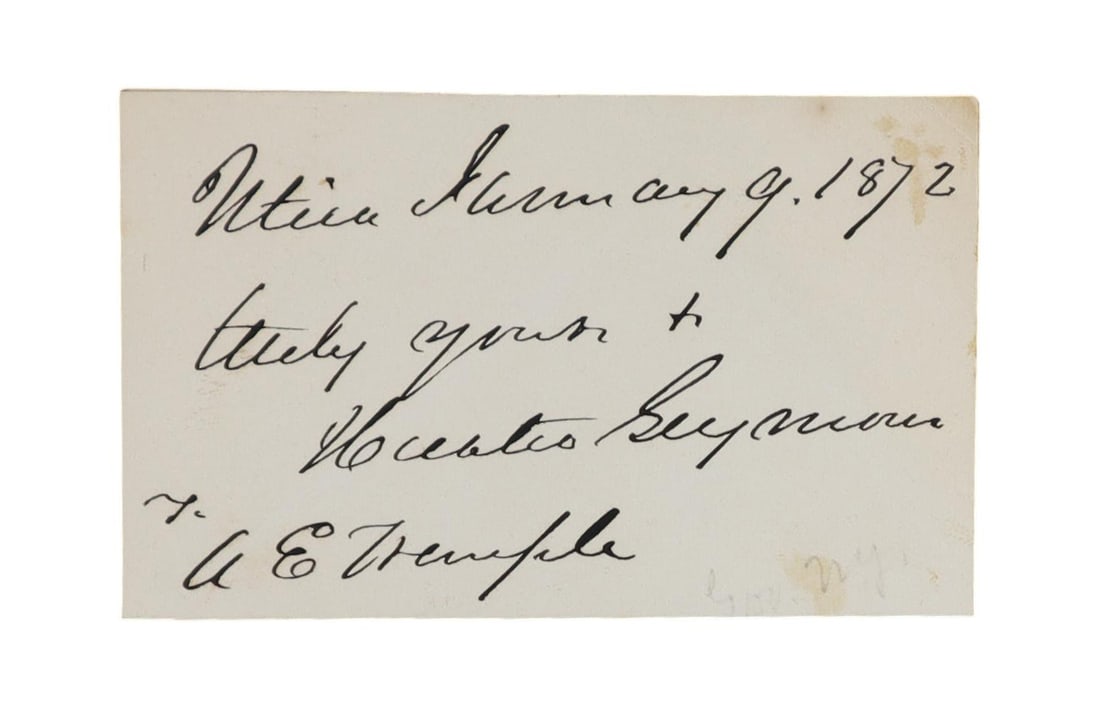 Utica January 9. 1872
truly yours &
Horatio Seymour
To
A E Temple
Gov. N.Y.